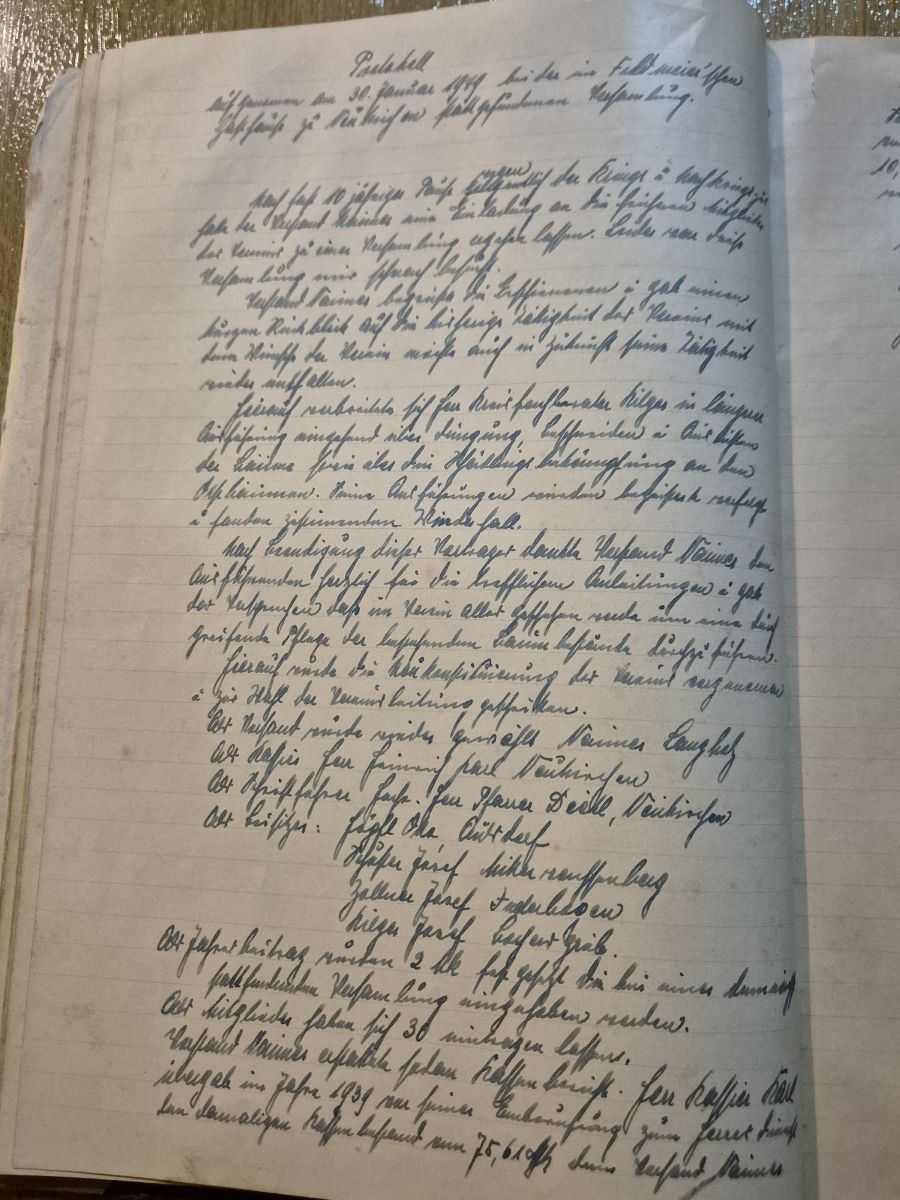 Protokoll
aufgenommen am 30. Januar 1949 bei der im Feldmeier'schen
Gasthause zu Neukirchen stattgefundenen Versammlung.
Nach fast 10 jähriger Pause wegen der Kriegs u Nachkriegszeit
hat der Vorstand eine Einladung an die früheren Mitglieder
des Vereins zu einer Versammlung ergehen lassen. Leider war diese
Versammlung nur schwach besucht.
Vorstand begrüßte die Erschienenen u gab einen
kurzen Rückblick auf die bisherige Tätigkeit des Vereins mit
dem Wunsche der Verein möchte auch in Zukunft seine Tätigkeit
wieder entfalten.
Hierauf verbreitete sich Herr Kreisfachberater Kilger in längerer
Ausführung eingehend über Düngung, Beschneiden u Auslichten
der Bäume sowie über die Schädlingsbekämpfung an den
Obstbäumen. Seine Ausführungen wurden begeistert verfolgt
u fanden zustimmenden Wiederhall.
Nach Beendigung dieses Vortrages dankte Vorstand dem
Ausführenden herzlich für die trefflichen Anleitungen u gab
das Versprechen dass im Verein alles geschehen werde um eine durch
greifende Pflege der bestehenden Baumbestände durchzuführen.
Hierauf wurde die Neukonstituierung des Vereins vorgenommen
u zur Wahl der Vereinsleitung geschritten.
Als Vorstand wurde wieder gewählt
Als Kassier Herr Heinrich Karl Neukirchen
Als Schriftführer Hochw. Herr Pfarrer Neukirchen
Als Beisitzer: Otto
Josef
Zollner Josef
Kilger Josef
Als Jahresbeitrag wurden 2 Mk festgesetzt die bei einer demnächst
stattfindenden Versammlung eingehoben werden.
Als Mitglieder haben sich 30 eintragen lassen.
Vorstand erstattete sodann Kassenbericht. Herr Kassier Karl
übergab im Jahre 1939 vor seiner Einberufung zum Heeresdienst
den damaligen Kassenbestand von 75,61 Mk dem Vorstand